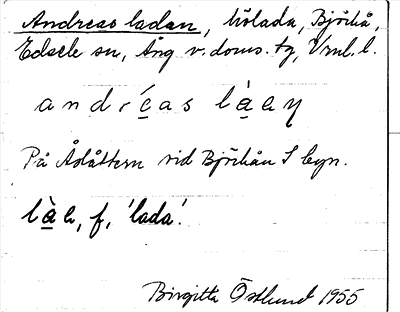 Andreas ladan, hölada, Björkå,
Edsele sn, Ång v. doms. tg, Vrnl. l.
andréas làay
På Ådåttern vid Björkån S byn.
làe, f, 'lada'.
Birgitta Östlund 1955